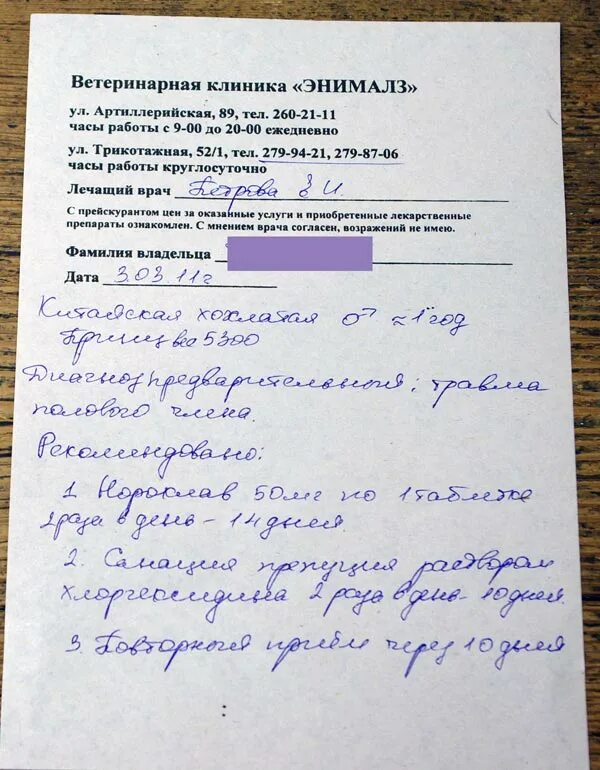 Ветеринарная клиника «ЭНИМАЛЗ»
ул. Артиллерийская, 89, тел. 260-21-11
часы работы с 9-00 до 20-00 ежедневно
ул. Трикотажная, 52/1, тел. 279-94-21, 279-87-06
часы работы круглосуточно
Лечащий врач Петрова Е И.
С прейскурантом цен за оказанные услуги и приобретенные лекарственные
препараты ознакомлен. С мнением врача согласен, возражений не имею.
Фамилия владельца
Дата 3.03.11г
Китайская хохлатая ♂ ≈ 1 год
Принц вес 5300
Диагноз предварительный: травма
полового члена.
Рекомендовано:
1. Нороклав 50мг по 1 таблетке
2 раза в день - 14 дней.
2. Санация препуция раствором
хлоргексидина 2 раза в день - 10 дней.
3. Повторный приём через 10 дней